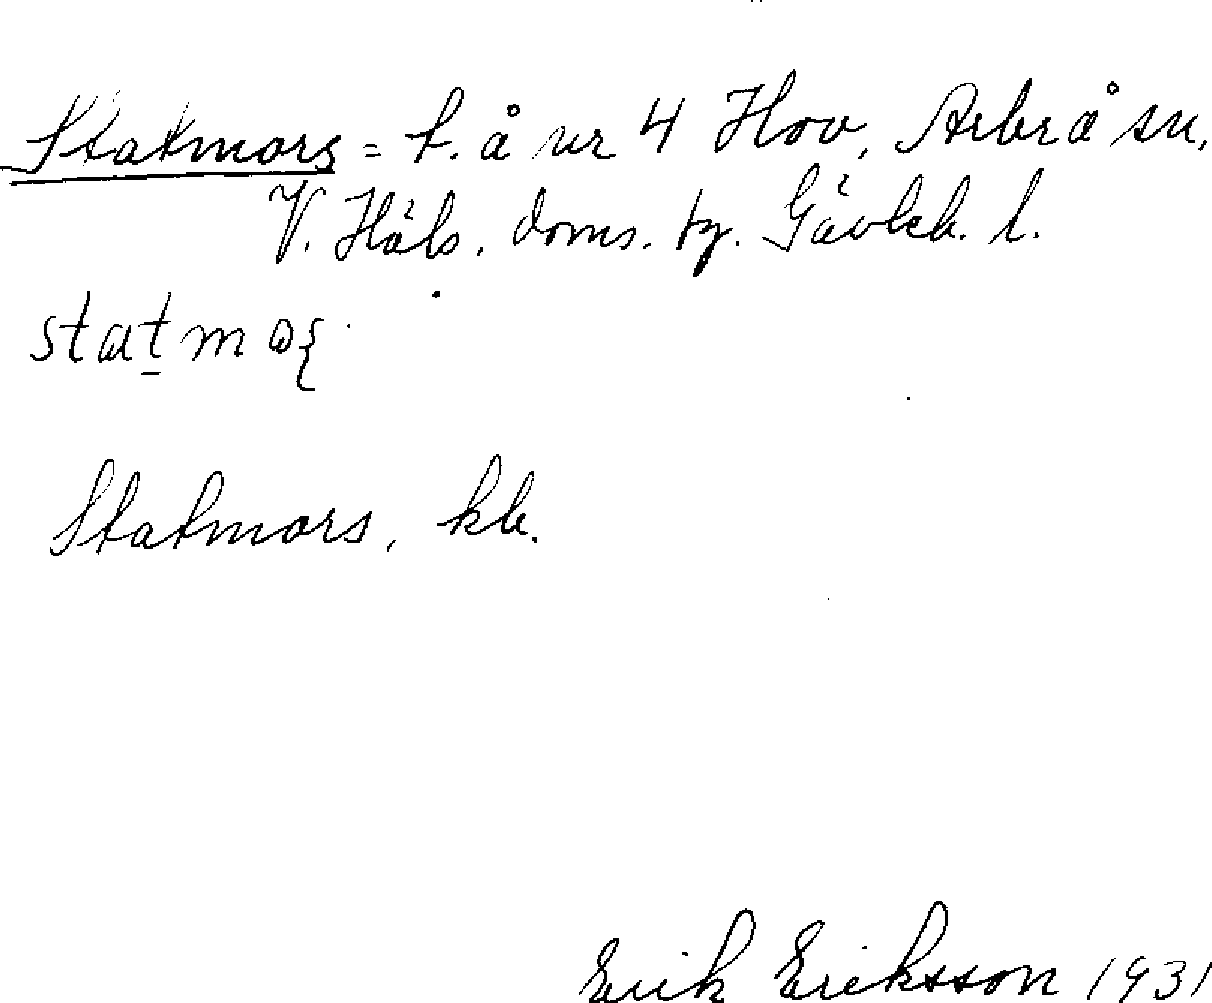 Statmors = t. å nr 4 Hov, Arbrå sn,
V. Häls. doms. tg. Gävleb. l.
Statmors, kb.
Erik Eriksson 1931